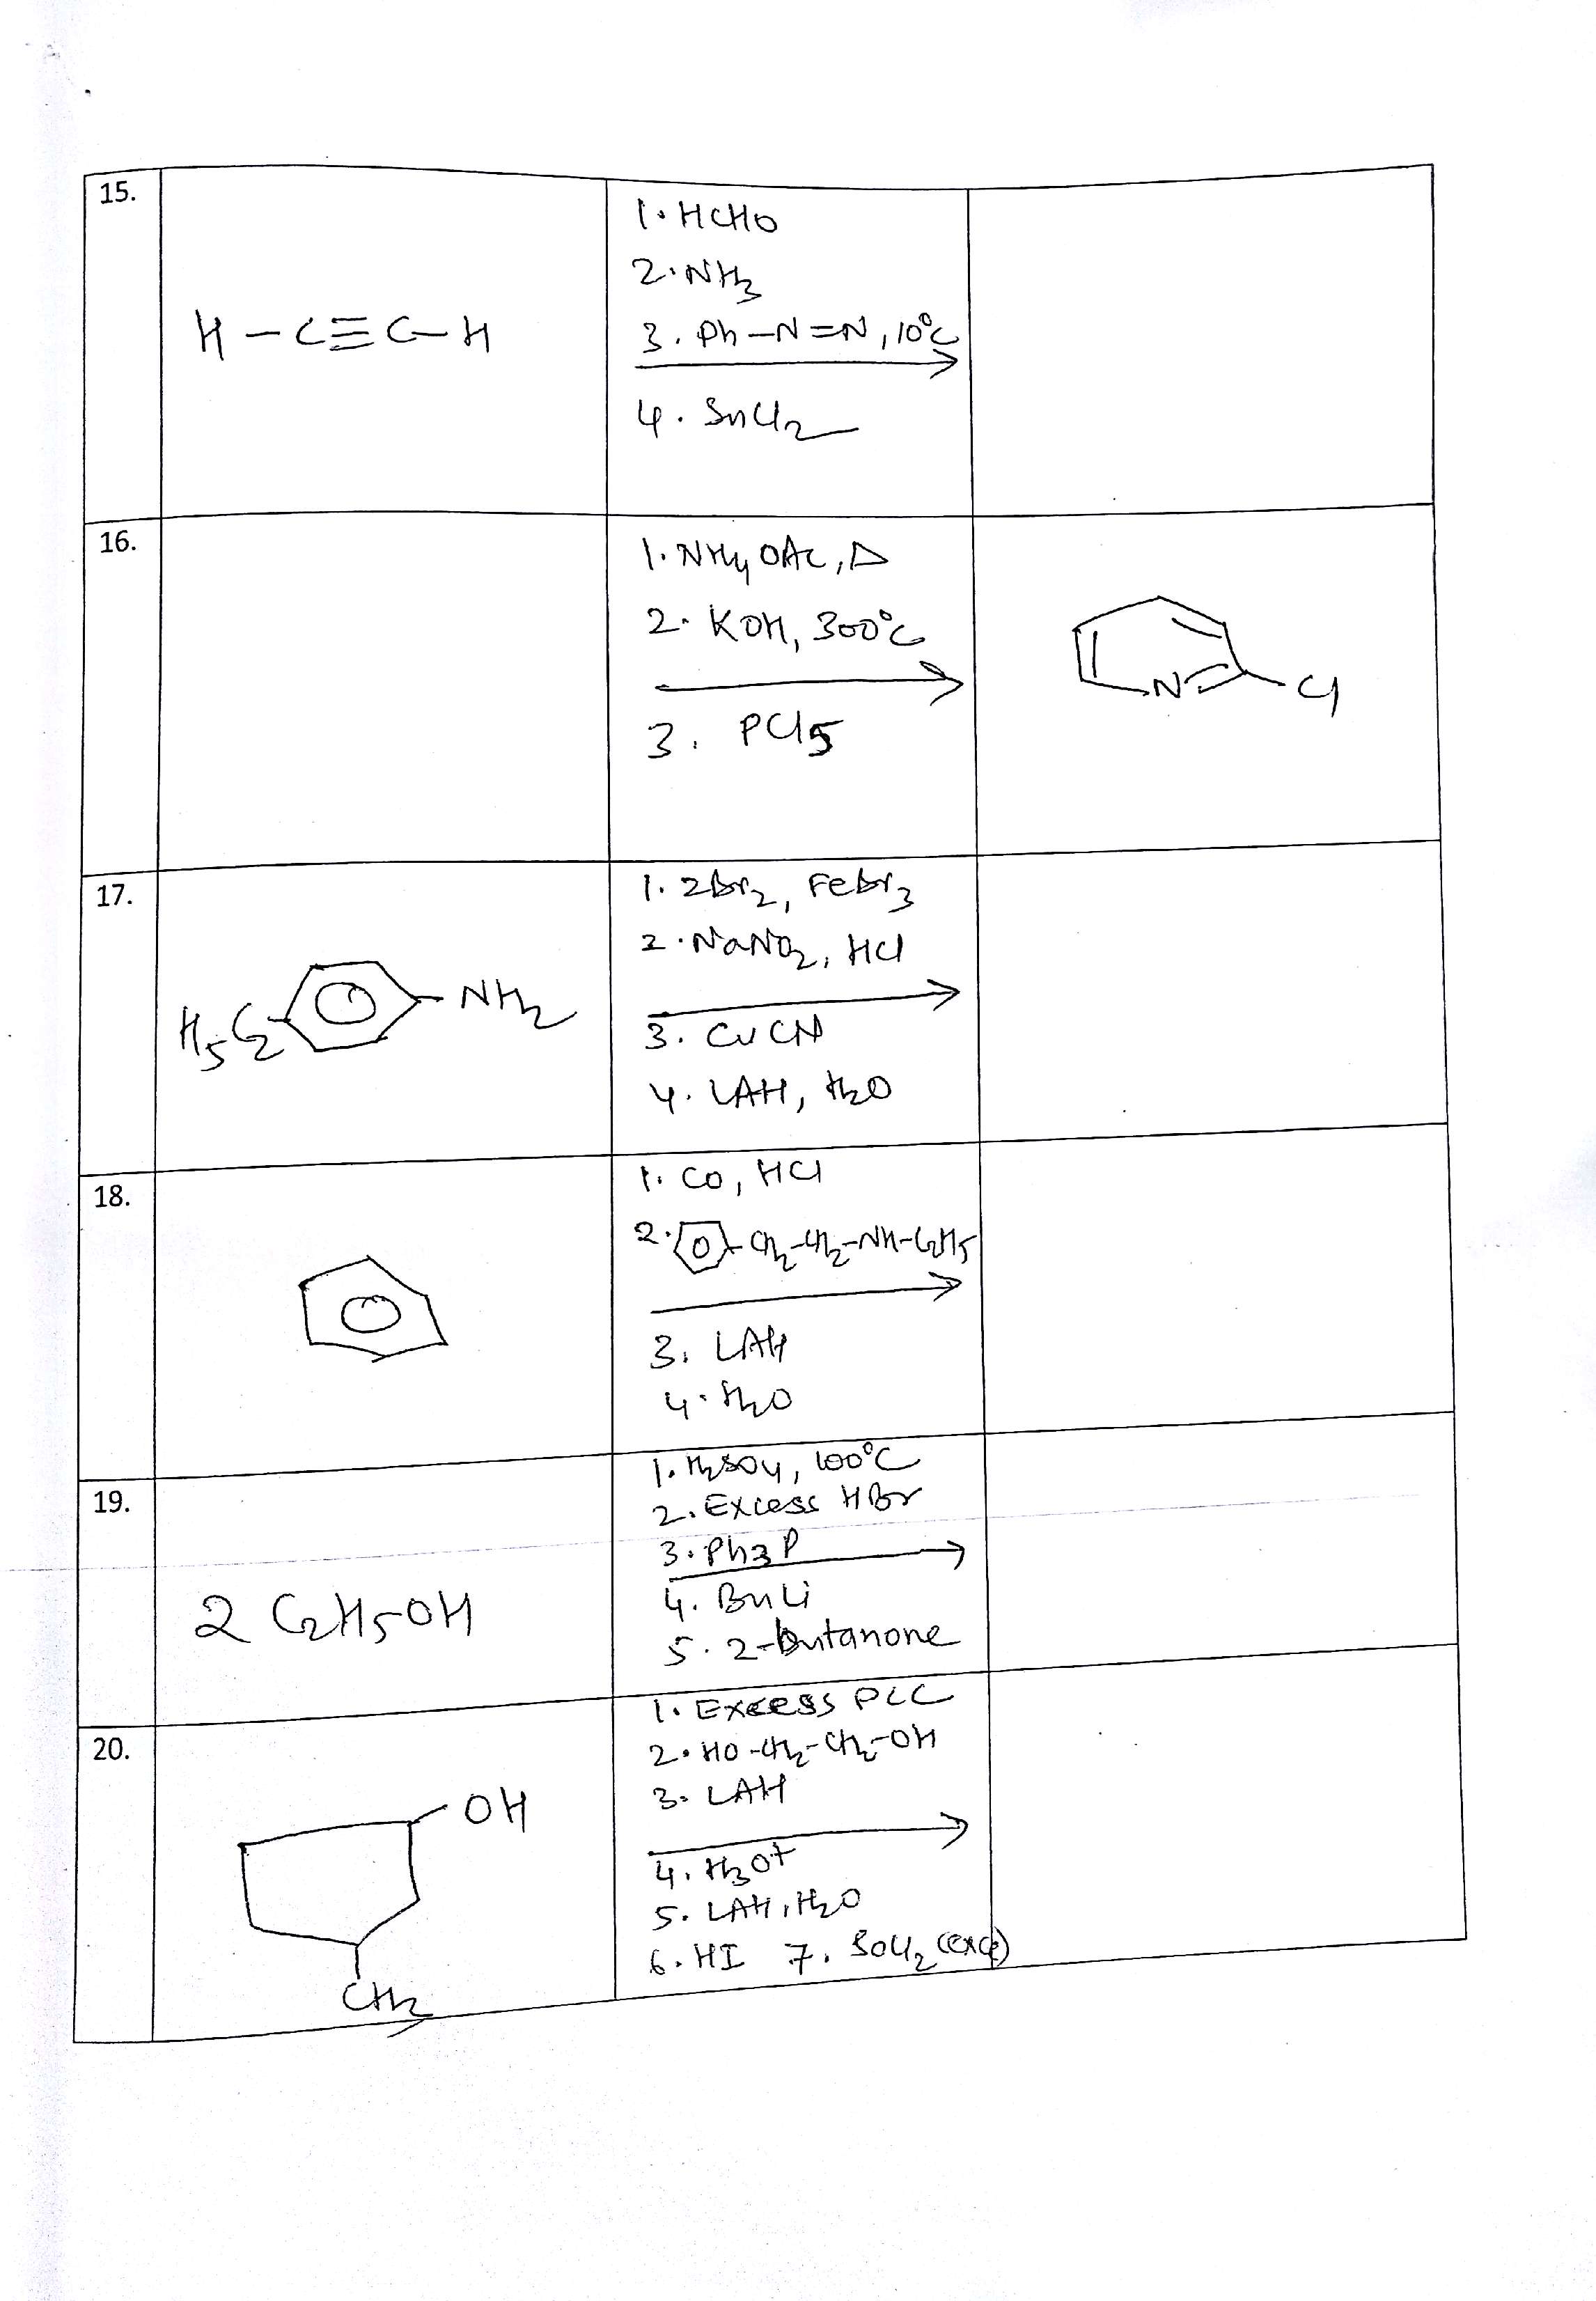 15.
H-C≡C-H
1. HCHO
2. NH3
3. Ph-N=N, 10°C
4. SnCl2
16.
1. NH4OAc, Δ
2. KOH, 300°C
3. PCl5
N
Cl
17.
H5C2
NH2
1. 2Br2, FeBr3
2. NaNO2, HCl
3. CuCN
4. LAH, H2O
18.
1. CO, HCl
2. CH2-CH2-NH-C2H5
3. LAH
4. H2O
19.
2 C2H5OH
1. H2SO4, 100°C
2. Excess HBr
3. Ph3P
4. BuLi
5. 2-butanone
20.
OH
CH2
1. Excess PCC
2. HO-CH2-CH2-OH
3. LAH
4. H3O+
5. LAH, H2O
6. HI 7. SOCl2